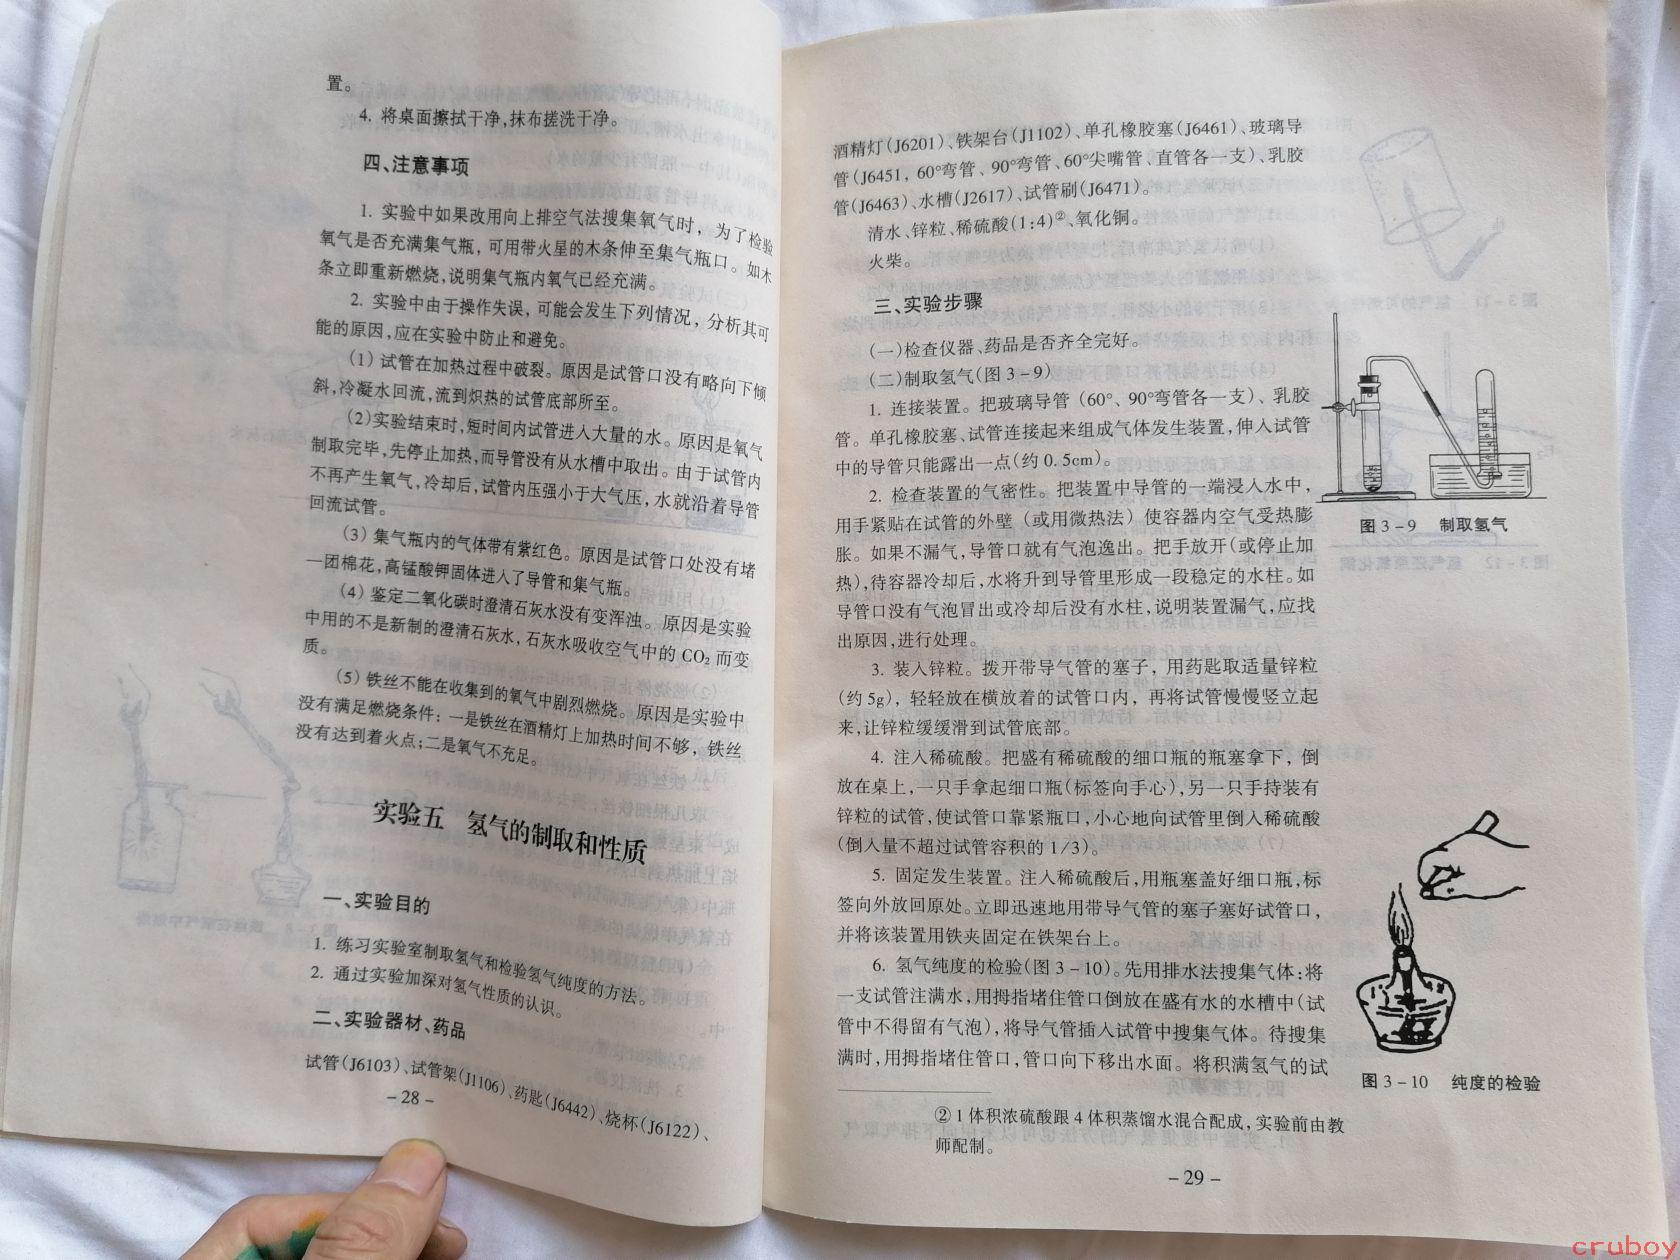 置。
4. 将桌面擦拭干净,抹布搓洗干净。
四、注意事项
1. 实验中如果改用向上排空气法搜集氧气时，为了检验
氧气是否充满集气瓶，可用带火星的木条伸至集气瓶口。如木
条立即重新燃烧,说明集气瓶内氧气已经充满。
2. 实验中由于操作失误，可能会发生下列情况，分析其可
能的原因,应在实验中防止和避免。
(1) 试管在加热过程中破裂。原因是试管口没有略向下倾
斜,冷凝水回流,流到炽热的试管底部所至。
(2)实验结束时,短时间内试管进入大量的水。原因是氧气
制取完毕,先停止加热,而导管没有从水槽中取出。由于试管内
不再产生氧气,冷却后,试管内压强小于大气压,水就沿着导管
回流试管。
(3) 集气瓶内的气体带有紫红色。原因是试管口处没有堵
一团棉花,高锰酸钾固体进入了导管和集气瓶。
(4) 鉴定二氧化碳时澄清石灰水没有变浑浊。原因是实验
中用的不是新制的澄清石灰水,石灰水吸收空气中的 CO₂ 而变
质。
(5) 铁丝不能在收集到的氧气中剧烈燃烧。原因是实验中
没有满足燃烧条件：一是铁丝在酒精灯上加热时间不够，铁丝
没有达到着火点;二是氧气不充足。
实验五 氢气的制取和性质
一、实验目的
1. 练习实验室制取氢气和检验氢气纯度的方法。
2. 通过实验加深对氢气性质的认识。
二、实验器材、药品
试管(J6103)、试管架(J1106)、药匙(J6442)、烧杯(J6122)、
－28－
酒精灯(J6201)、铁架台(J1102)、单孔橡胶塞(J6461)、玻璃导
管(J6451, 60°弯管、90°弯管、60°尖嘴管、直管各一支)、乳胶
管(J6463)、水槽(J2617)、试管刷(J6471)。
清水、锌粒、稀硫酸(1:4)②、氧化铜。
火柴。
三、实验步骤
(一)检查仪器、药品是否齐全完好。
(二)制取氢气(图 3－9)
1. 连接装置。把玻璃导管（60°、90°弯管各一支）、乳胶
管。单孔橡胶塞、试管连接起来组成气体发生装置,伸入试管
中的导管只能露出一点(约 0.5cm)。
2. 检查装置的气密性。把装置中导管的一端浸入水中，
用手紧贴在试管的外壁（或用微热法）使容器内空气受热膨
胀。如果不漏气,导管口就有气泡逸出。把手放开(或停止加
热),待容器冷却后,水将升到导管里形成一段稳定的水柱。如
导管口没有气泡冒出或冷却后没有水柱,说明装置漏气,应找
出原因,进行处理。
图 3－9 制取氢气
3. 装入锌粒。拨开带导气管的塞子，用药匙取适量锌粒
(约 5g)，轻轻放在横放着的试管口内，再将试管慢慢竖立起
来,让锌粒缓缓滑到试管底部。
4. 注入稀硫酸。把盛有稀硫酸的细口瓶的瓶塞拿下，倒
放在桌上,一只手拿起细口瓶(标签向手心),另一只手持装有
锌粒的试管,使试管口靠紧瓶口,小心地向试管里倒入稀硫酸
(倒入量不超过试管容积的 1/3)。
5. 固定发生装置。注入稀硫酸后,用瓶塞盖好细口瓶,标
签向外放回原处。立即迅速地用带导气管的塞子塞好试管口，
并将该装置用铁夹固定在铁架台上。
6. 氢气纯度的检验(图 3－10)。先用排水法搜集气体:将
一支试管注满水,用拇指堵住管口倒放在盛有水的水槽中(试
管中不得留有气泡),将导气管插入试管中搜集气体。待搜集
满时,用拇指堵住管口,管口向下移出水面。将积满氢气的试
图 3－10 纯度的检验
② 1 体积浓硫酸跟 4 体积蒸馏水混合配成,实验前由教
师配制。
－29－
cruboy